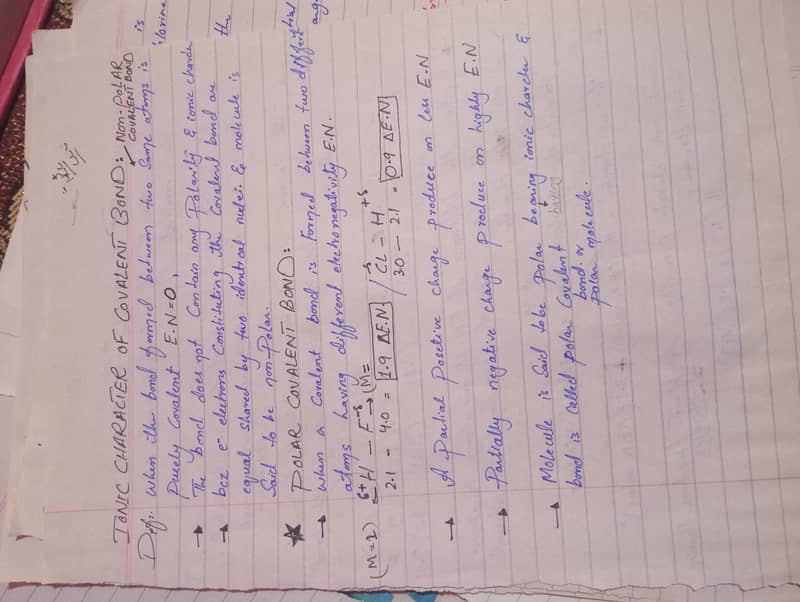 IONIC CHARACTER OF COVALENT BOND: Non-POLAR
COVALENT BOND
Def:. when the bond formed between two same atoms is
Purely Covalent E.N=0.
→ The bond does not Contain any Polarity & ionic charcter
→ bcz e⁻ electrons Constituting the Covalent bond are
equal shared by two identical nuclei & molecule is
Said to be non-Polar.
★ POLAR COVALENT BOND:
→ when a Covalent bond is Formed between two different
atoms having different electronegativity E.N.
(M=2) δ+H — F-δ → (M= / -δ CL — H +δ
2.1 - 4.0 = 1.9 ΔE.N / 3.0 — 2.1 = 0.9 ΔE.N
→ A Partial Posetive charge produce on less E.N
→ Partially negative charge Produce on highly E.N
→ Molecule is Said tobe Polar bearing ionic charcter &
having
bond is Called Polar Covalent
bond or
Polar molecule.
is
the